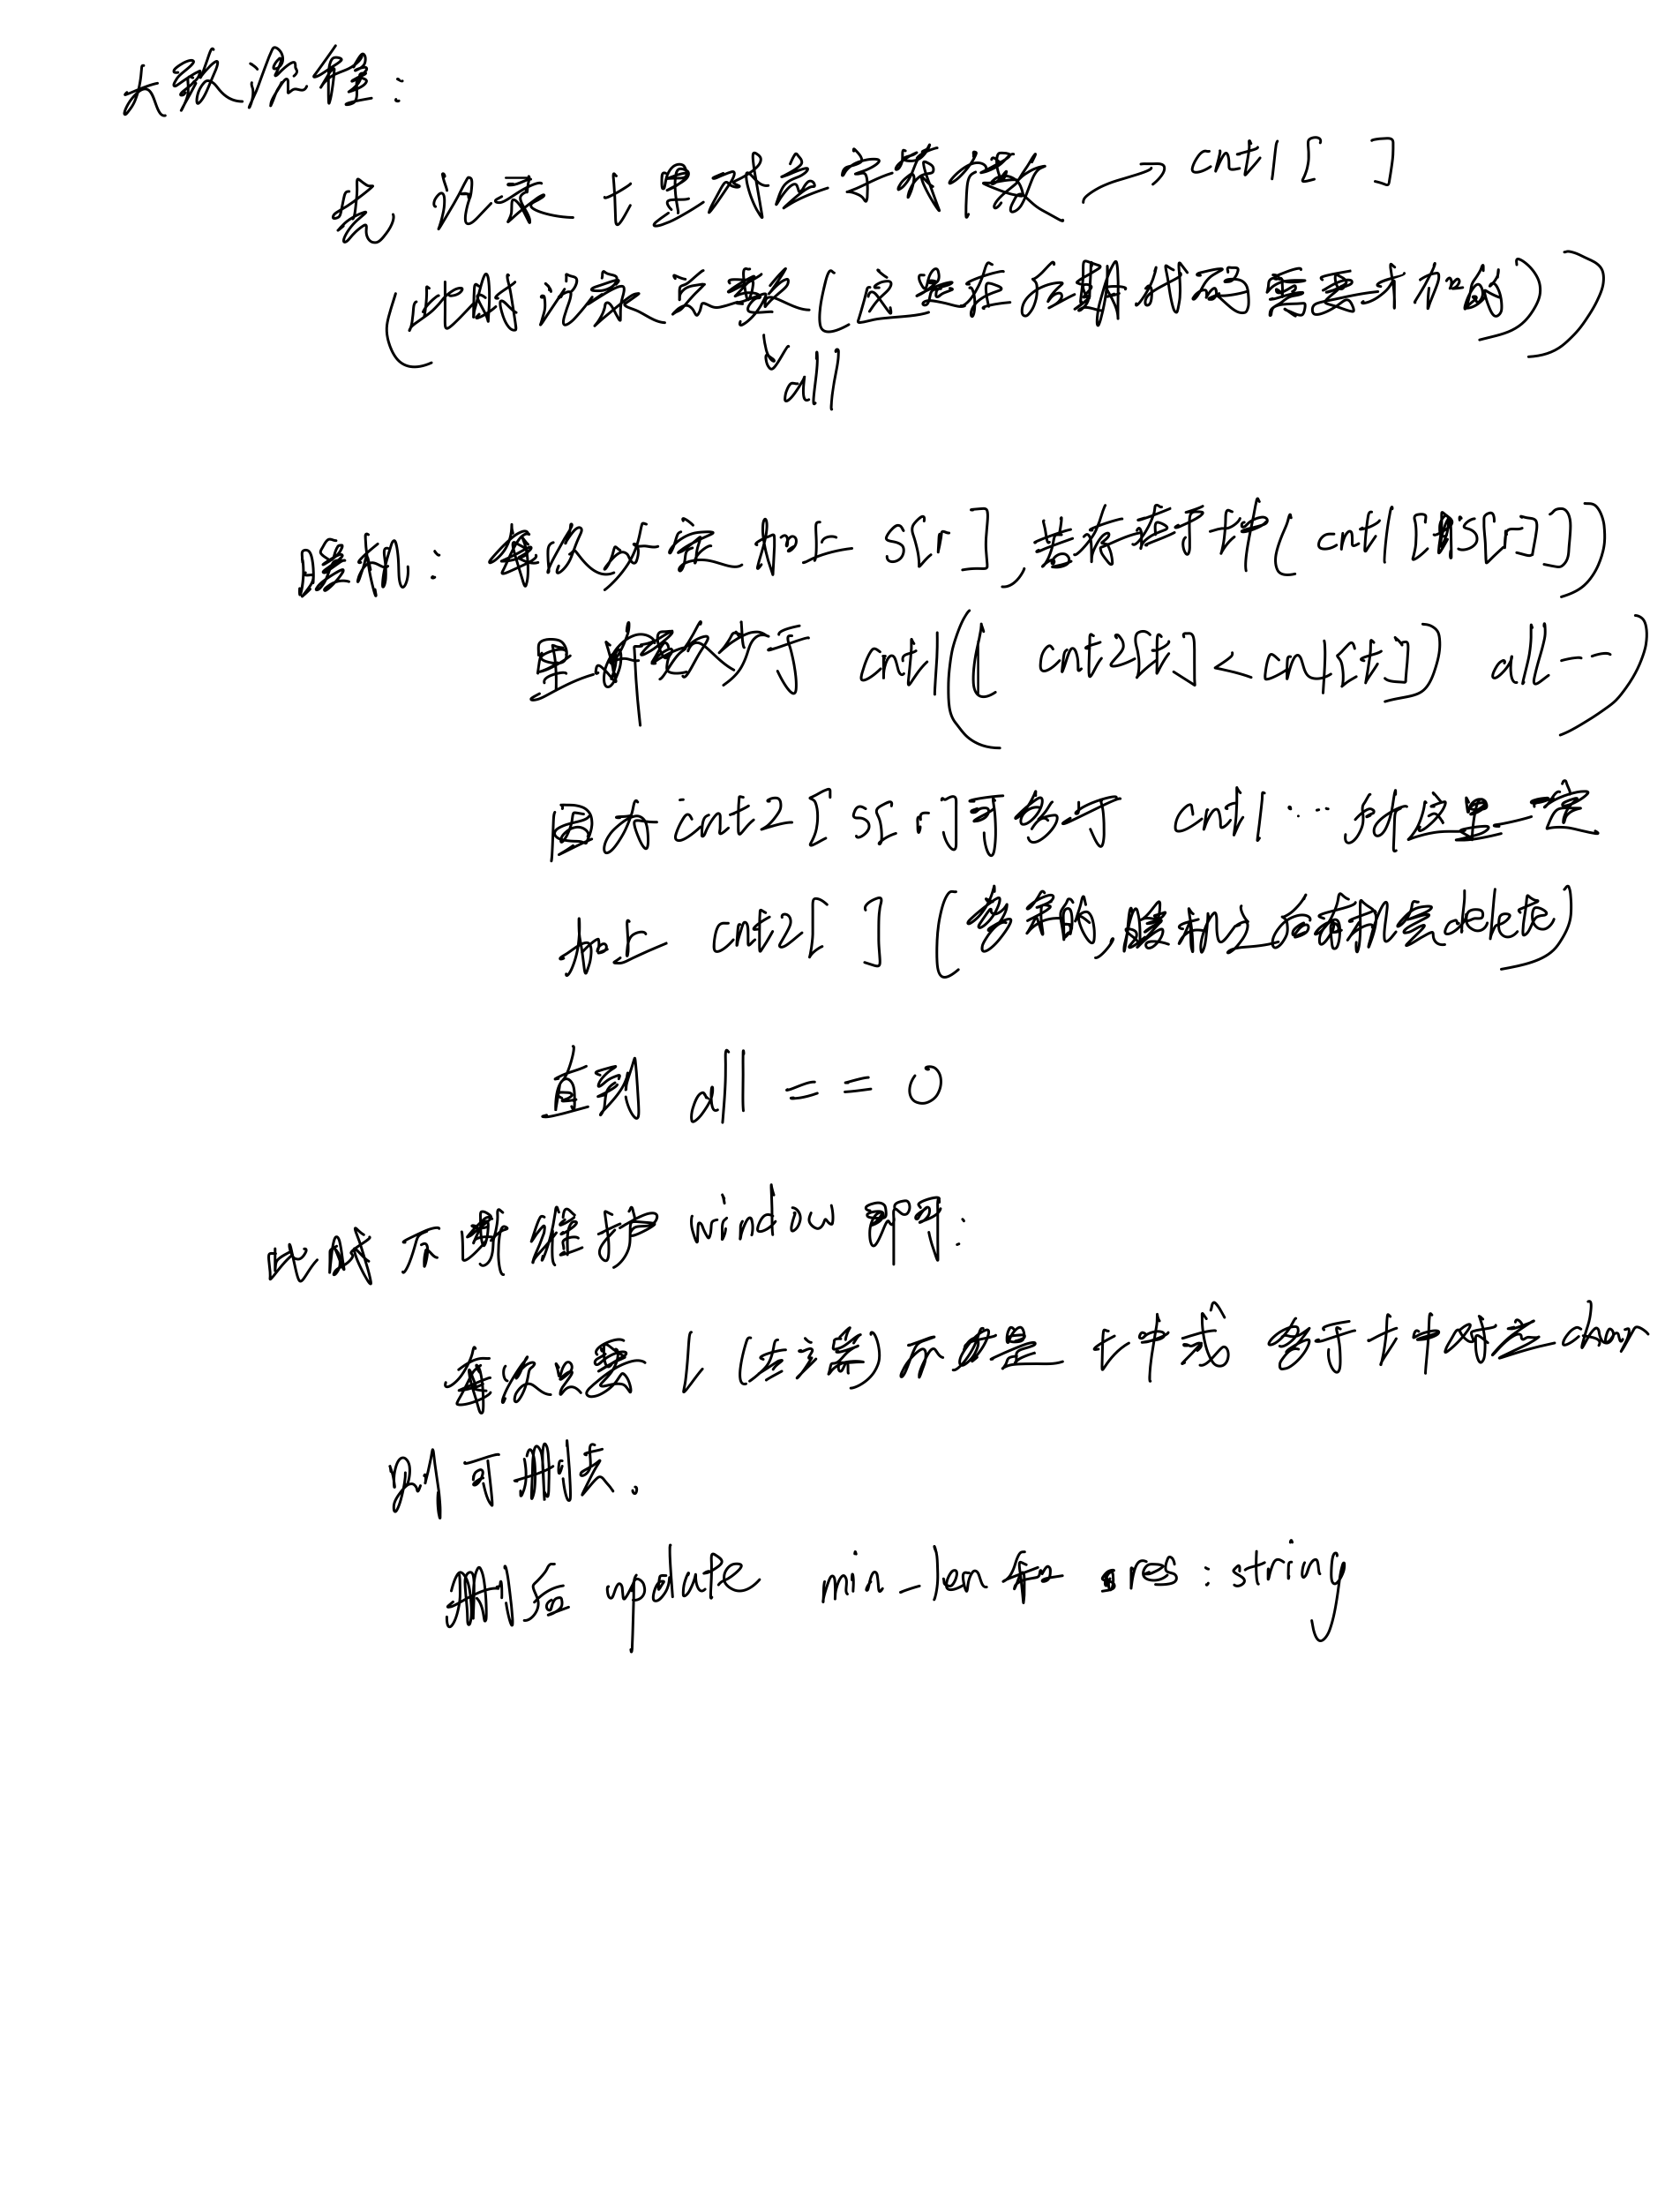 大致流程：
先 记录 t里对应字符个数 → cnt1[ ]
(此时记录总数(这是在后期代码需要才加的))
all
暖机：每次一定加上 s[r]，若存在于t中(cnt1[s[r]])
里 数少于 cnt1(( cnt2[t]<cnt1[t]) all--)
因为cnt2[s[r]可多于 cnt1…所以这里一定
加上 cnt2[ ] (多余的,暖机之后有机会delete)
直到 all == 0
此时不断维护 window 即可：
每次只要 l (左边界)不是 t中或 多于t中对应char
则可删去.
删后 update min_len和 res:string